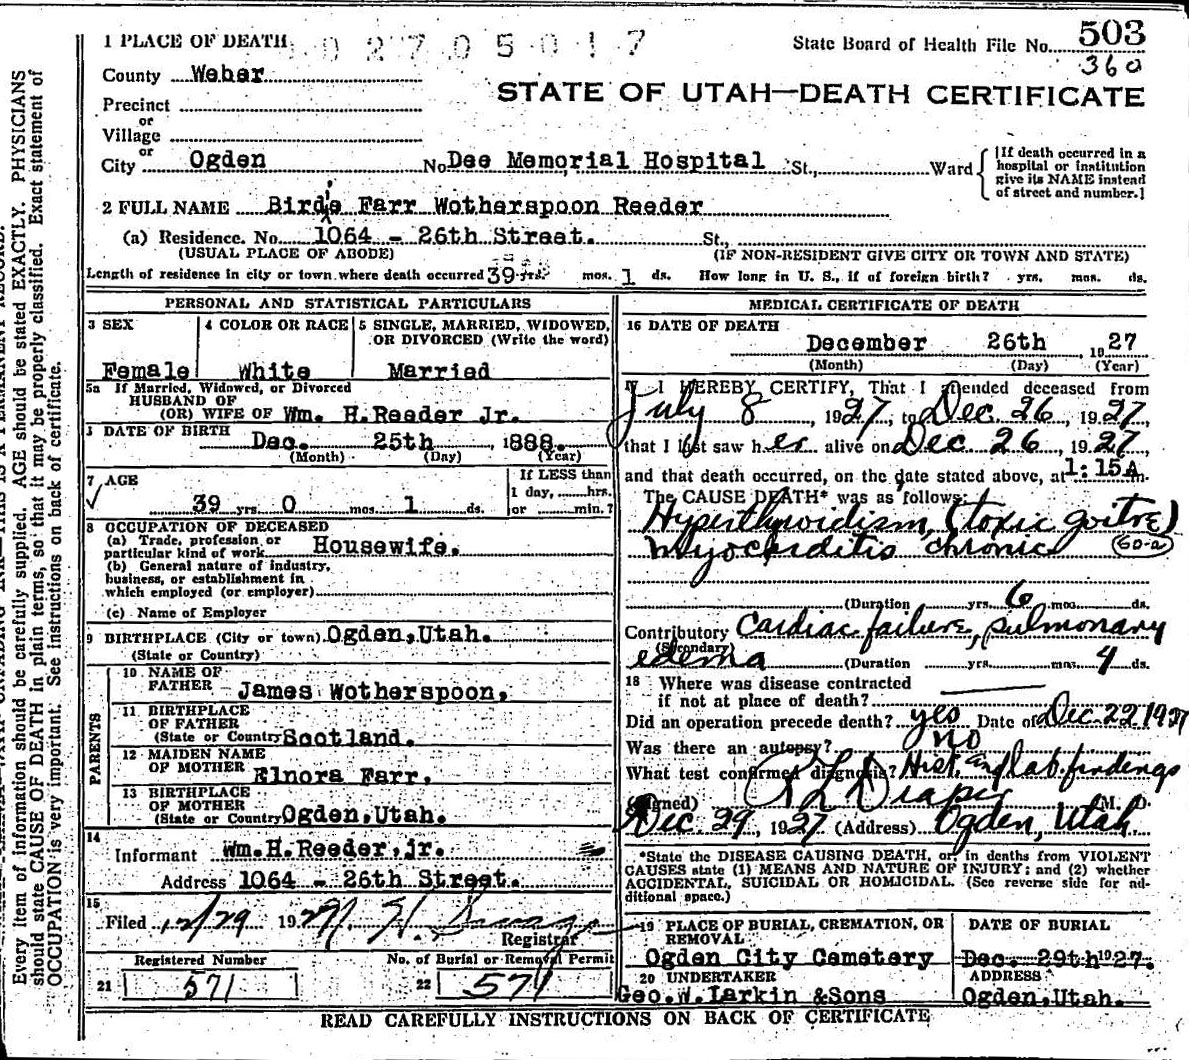 1 PLACE OF DEATH 02705017 State Board of Health File No. 503
360
County Weber
STATE OF UTAH—DEATH CERTIFICATE
Precinct
or
Village
or
City Ogden No Dee Memorial Hospital St., Ward {[If death occurred in a hospital or institution give its NAME instead of street and number.]
2 FULL NAME Birdie Farr Wotherspoon Reeder
(a) Residence. No. 1064 - 26th Street. St.,
(USUAL PLACE OF ABODE) (IF NON-RESIDENT GIVE CITY OR TOWN AND STATE)
Length of residence in city or town where death occurred 39 yrs. mos. 1 ds. How long in U. S., if of foreign birth? yrs. mos. ds.
PERSONAL AND STATISTICAL PARTICULARS
3 SEX
Female
4 COLOR OR RACE
White
5 SINGLE, MARRIED, WIDOWED, OR DIVORCED (Write the word)
Married
5a If Married, Widowed, or Divorced
HUSBAND OF
(OR) WIFE OF Wm. H.Reeder Jr.
DATE OF BIRTH
Dec. 25th , 1888.
(Month) (Day) (Year)
7 AGE
39 yrs. 0 mos. 1 ds.
If LESS than
1 day, hrs.
or min.?
8 OCCUPATION OF DECEASED
(a) Trade, profession or
particular kind of work Housewife.
(b) General nature of industry,
business, or establishment in
which employed (or employer)
(c) Name of Employer
9 BIRTHPLACE (City or town) Ogden,Utah.
(State or Country)
PARENTS
10 NAME OF
FATHER James Wotherspoon,
11 BIRTHPLACE
OF FATHER
(State or Country Scotland.
12 MAIDEN NAME
OF MOTHER Elnora Farr.
13 BIRTHPLACE
OF MOTHER
(State or Country Ogden,Utah.
14
Informant Wm.H.Reeder,jr.
Address 1064 - 26th Street.
15
Filed 12/29 1927
Registrar
Registered Number
21 571
No. of Burial or Removal Permit
22 571
MEDICAL CERTIFICATE OF DEATH
16 DATE OF DEATH
December 26th , 1927
(Month) (Day) (Year)
17 I HEREBY CERTIFY, That I attended deceased from
July 8 1927, to Dec 26, 1927,
that I last saw her alive on Dec 26, 1927,
and that death occurred, on the date stated above, at 1:15A m.
The CAUSE DEATH* was as follows:
Hyperthyroidism, (toxic goitre)
Myocarditis chronic 60-a
(Duration yrs. 6 mos. ds.
Contributory Cardiac failure, pulmonary
(Secondary)
edema (Duration yrs. mos. 4 ds.
18 Where was disease contracted
if not at place of death?
Did an operation precede death? yes Date of Dec. 22 1927
Was there an autopsy? no
What test confirmed diagnosis? Hist. and lab. findings
(Signed) R L Draper M. D.
Dec 29, 1927 (Address) Ogden, Utah
*State the DISEASE CAUSING DEATH, or, in deaths from VIOLENT
CAUSES state (1) MEANS AND NATURE OF INJURY; and (2) whether
ACCIDENTAL, SUICIDAL OR HOMICIDAL. (See reverse side for ad-
ditional space.)
19 PLACE OF BURIAL, CREMATION, OR
REMOVAL
Ogden City Cemetery
DATE OF BURIAL
Dec. 29th 1927.
20 UNDERTAKER
Geo.W.Larkin &Sons
ADDRESS
Ogden,Utah.
READ CAREFULLY INSTRUCTIONS ON BACK OF CERTIFICATE
Every item of information should be carefully supplied. AGE should be stated EXACTLY. PHYSICIANS
should state CAUSE OF DEATH in plain terms, so that it may be properly classified. Exact statement of
OCCUPATION is very important. See instructions on back of certificate.